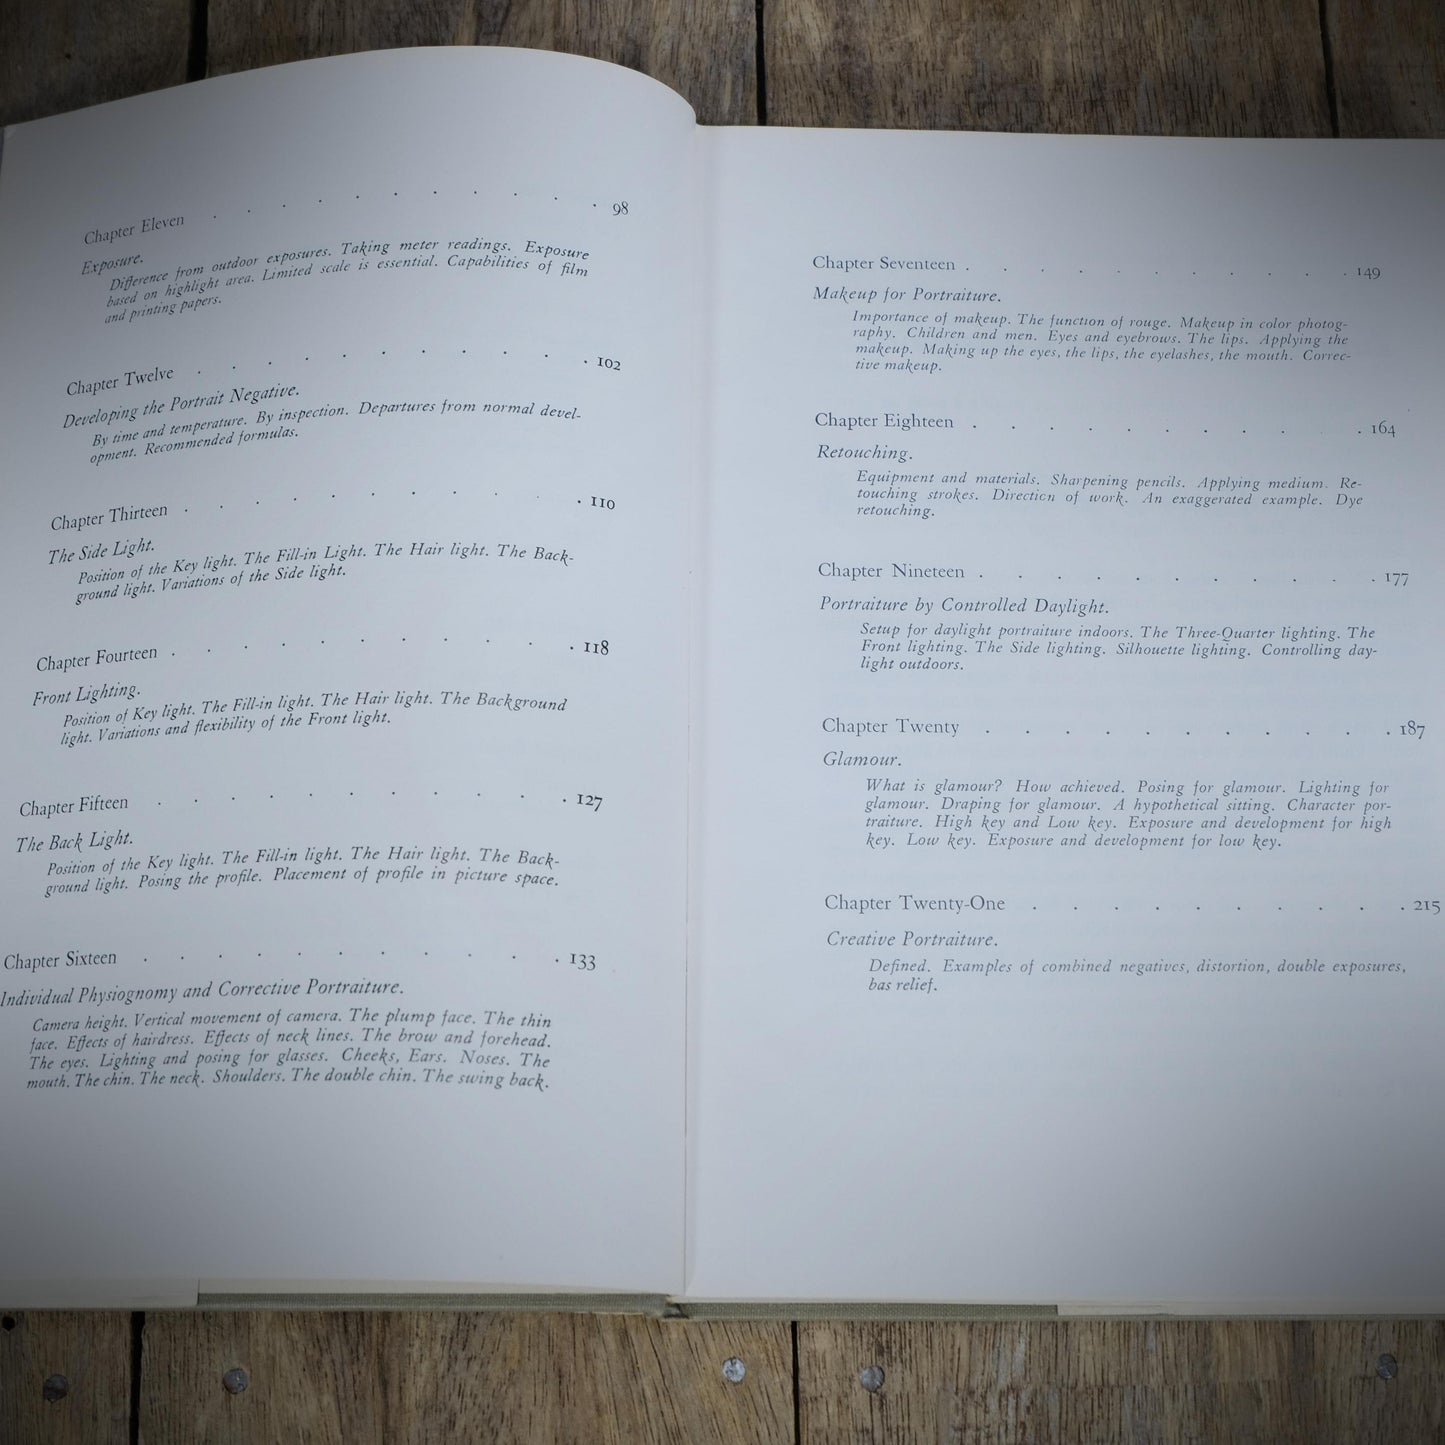 Chapter Eleven . . . . . . . . . . 98
Exposure.
Difference from outdoor exposures. Taking meter readings. Exposure
based on highlight area. Limited scale is essential. Capabilities of film
and printing papers.
Chapter Twelve . . . . . . . . . . 102
Developing the Portrait Negative.
By time and temperature. By inspection. Departures from normal devel-
opment. Recommended formulas.
Chapter Thirteen . . . . . . . . . . 110
The Side Light.
Position of the Key light. The Fill-in Light. The Hair light. The Back-
ground light. Variations of the Side light.
Chapter Fourteen . . . . . . . . . . 118
Front Lighting.
Position of Key light. The Fill-in light. The Hair light. The Background
light. Variations and flexibility of the Front light.
Chapter Fifteen . . . . . . . . . . . 127
The Back Light.
Position of the Key light. The Fill-in light. The Hair light. The Back-
ground light. Posing the profile. Placement of profile in picture space.
Chapter Sixteen . . . . . . . . . . . 133
Individual Physiognomy and Corrective Portraiture.
Camera height. Vertical movement of camera. The plump face. The thin
face. Effects of hairdress. Effects of neck lines. The brow and forehead.
The eyes. Lighting and posing for glasses. Cheeks, Ears. Noses. The
mouth. The chin. The neck. Shoulders. The double chin. The swing back.
Chapter Seventeen . . . . . . . . . . 149
Makeup for Portraiture.
Importance of makeup. The function of rouge. Makeup in color photog-
raphy. Children and men. Eyes and eyebrows. The lips. Applying the
makeup. Making up the eyes, the lips, the eyelashes, the mouth. Correc-
tive makeup.
Chapter Eighteen . . . . . . . . . . 164
Retouching.
Equipment and materials. Sharpening pencils. Applying medium. Re-
touching strokes. Direction of work. An exaggerated example. Dye
retouching.
Chapter Nineteen . . . . . . . . . . . 177
Portraiture by Controlled Daylight.
Setup for daylight portraiture indoors. The Three-Quarter lighting. The
Front lighting. The Side lighting. Silhouette lighting. Controlling day-
light outdoors.
Chapter Twenty . . . . . . . . . . . 187
Glamour.
What is glamour? How achieved. Posing for glamour. Lighting for
glamour. Draping for glamour. A hypothetical sitting. Character por-
traiture. High key and Low key. Exposure and development for high
key. Low key. Exposure and development for low key.
Chapter Twenty-One . . . . . . . . . . 215
Creative Portraiture.
Defined. Examples of combined negatives, distortion, double exposures,
bas relief.